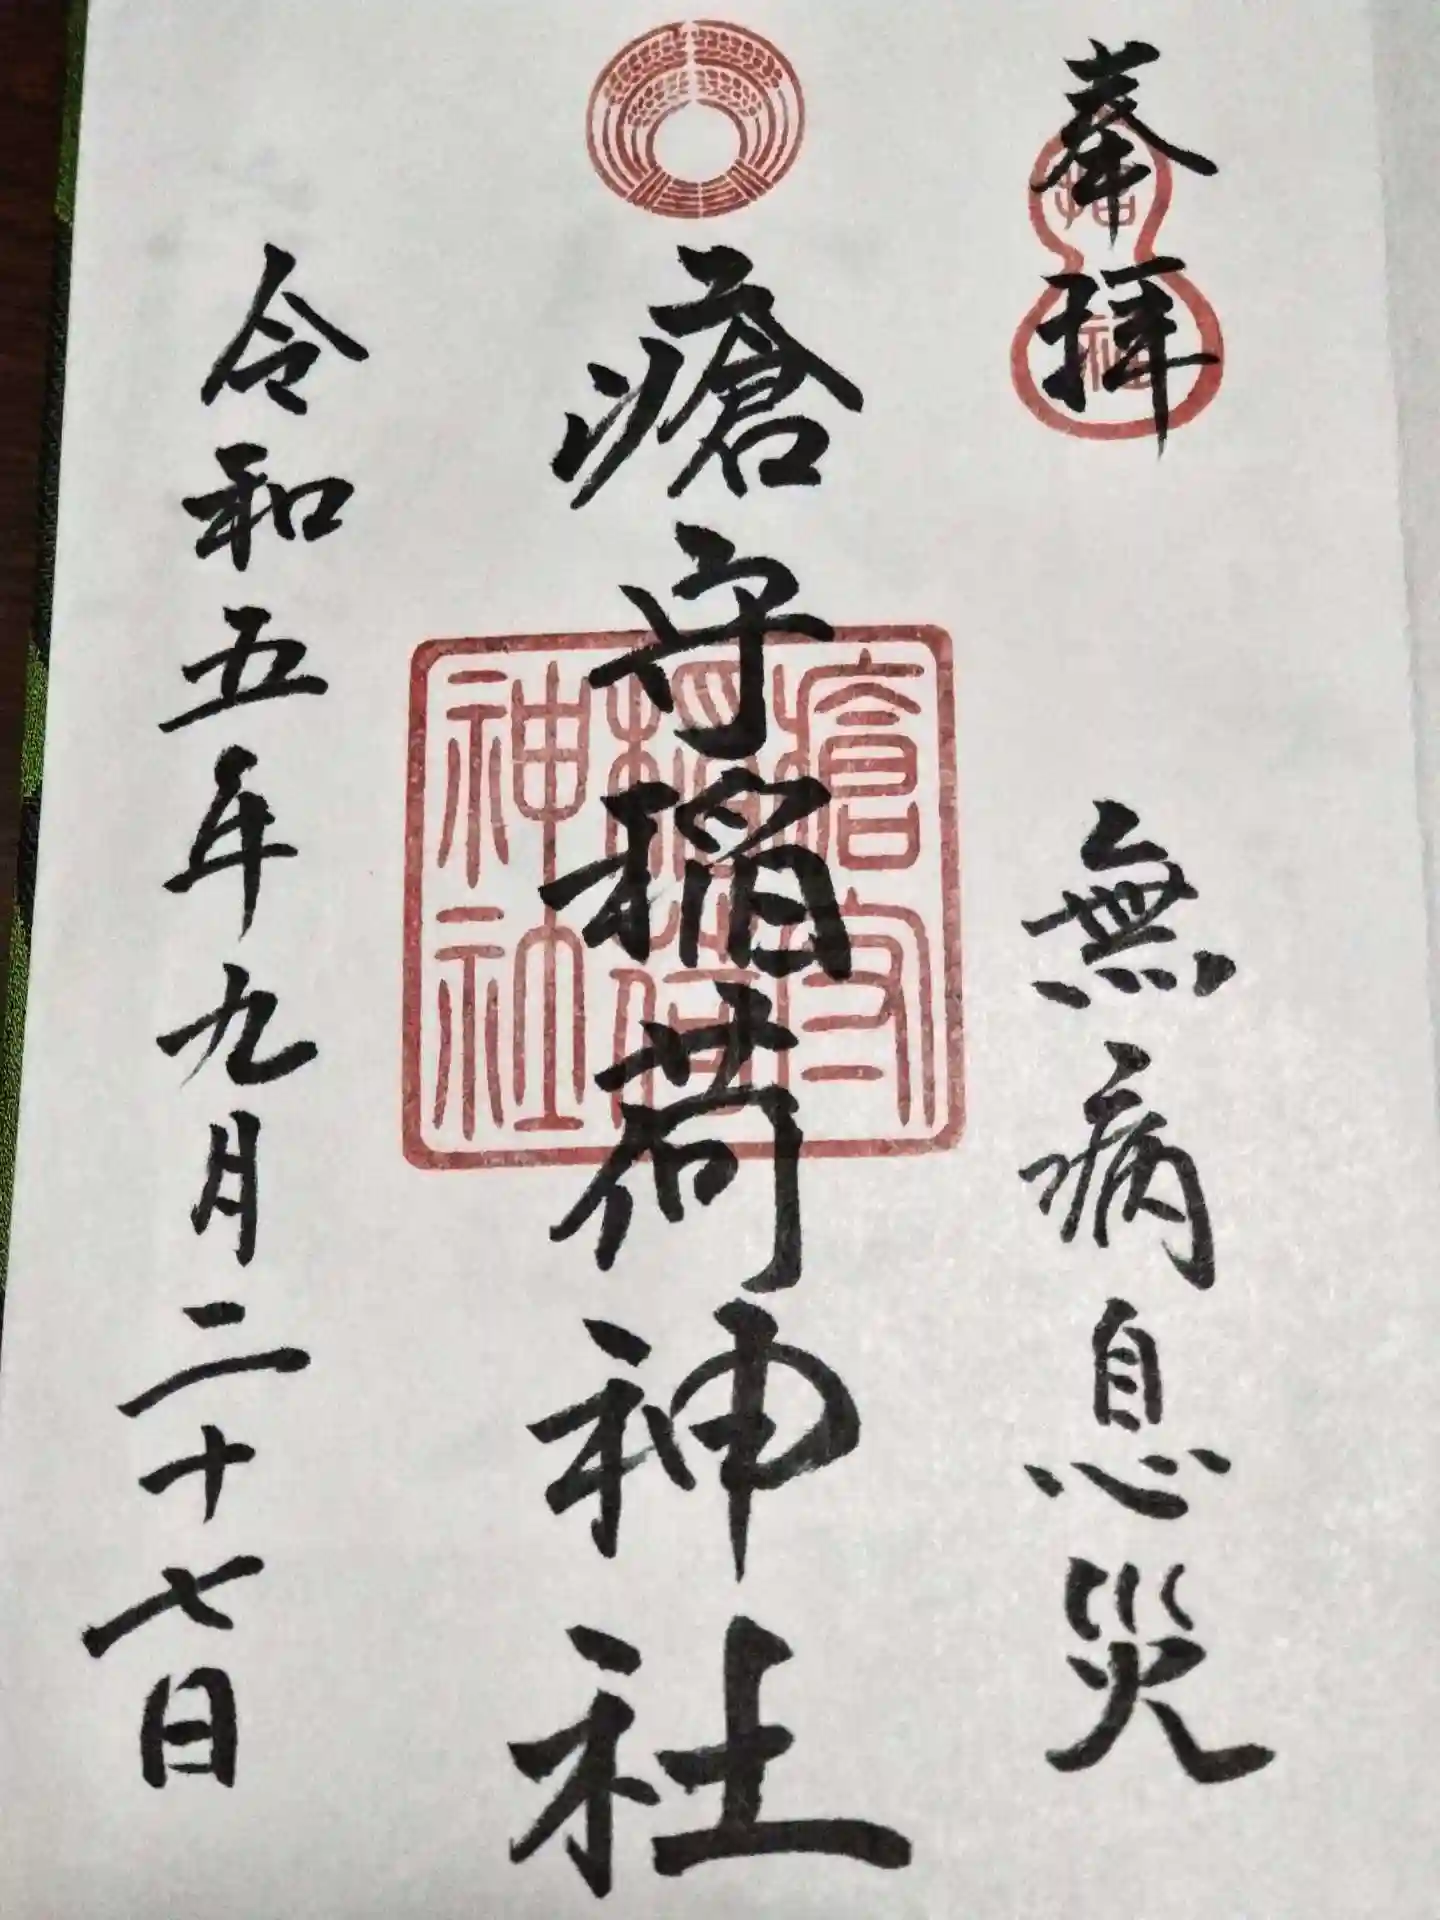 奉拝
無病息災
瘡守稲荷神社
瘡守
稲荷
神社
令和五年九月二十七日